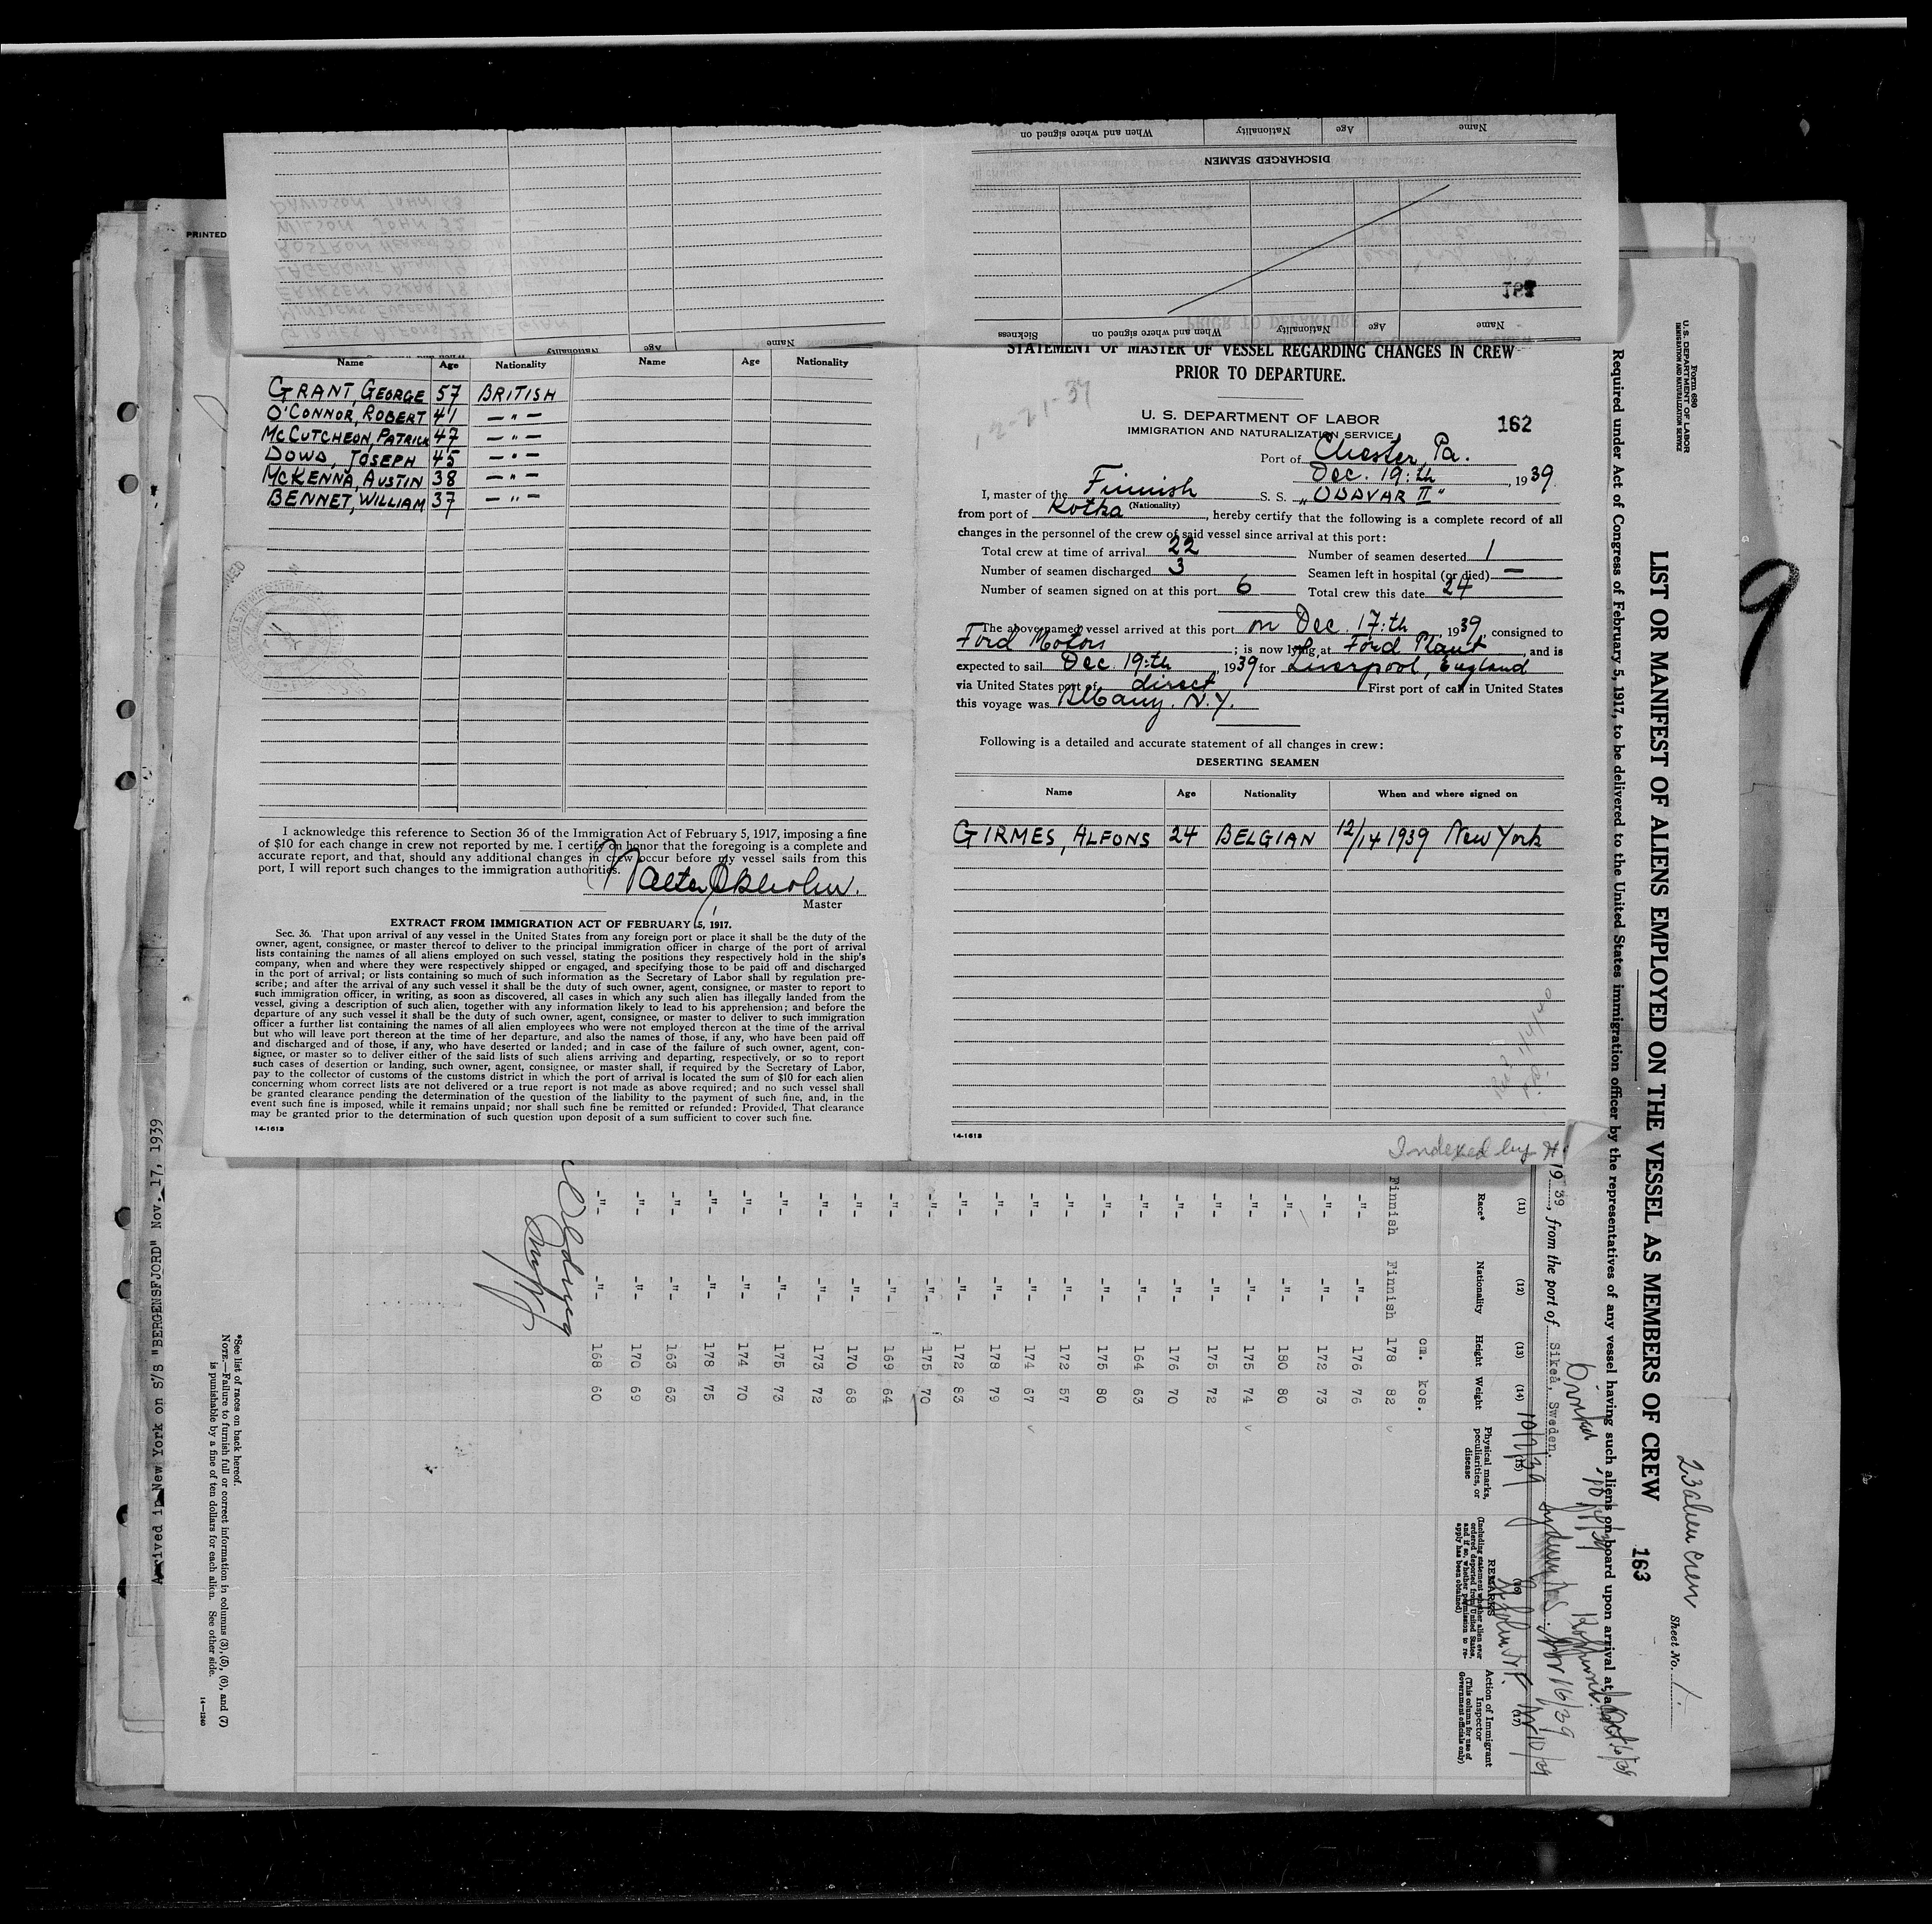 Name Age Nationality When and where signed on
DISCHARGED SEAMEN
162
Name Age Nationality When and where signed on Sickness
Name Age Nationality
PRINTED
Name Age Nationality Name Age Nationality
GRANT, GEORGE 57 BRITISH
O'CONNOR, ROBERT 41 — " —
McCUTCHEON, PATRICK 47 — " —
DOWD, JOSEPH 45 — " —
McKENNA, AUSTIN 38 — " —
BENNET, WILLIAM 37 — " —
I acknowledge this reference to Section 36 of the Immigration Act of February 5, 1917, imposing a fine
of $10 for each change in crew not reported by me. I certify on honor that the foregoing is a complete and
accurate report, and that, should any additional changes in crew occur before my vessel sails from this
port, I will report such changes to the immigration authorities.
Master
EXTRACT FROM IMMIGRATION ACT OF FEBRUARY 5, 1917.
Sec. 36. That upon arrival of any vessel in the United States from any foreign port or place it shall be the duty of the
owner, agent, consignee, or master thereof to deliver to the principal immigration officer in charge of the port of arrival
lists containing the names of all aliens employed on such vessel, stating the positions they respectively hold in the ship's
company, when and where they were respectively shipped or engaged, and specifying those to be paid off and discharged
in the port of arrival; or lists containing so much of such information as the Secretary of Labor shall by regulation pre-
scribe; and after the arrival of any such vessel it shall be the duty of such owner, agent, consignee, or master to report to
such immigration officer, in writing, as soon as discovered, all cases in which any such alien has illegally landed from the
vessel, giving a description of such alien, together with any information likely to lead to his apprehension; and before the
departure of any such vessel it shall be the duty of such owner, agent, consignee, or master to deliver to such immigration
officer a further list containing the names of all alien employees who were not employed thereon at the time of the arrival
but who will leave port thereon at the time of her departure, and also the names of those, if any, who have been paid off
and discharged and of those, if any, who have deserted or landed; and in case of the failure of such owner, agent, con-
signee, or master so to deliver either of the said lists of such aliens arriving and departing, respectively, or so to report
such cases of desertion or landing, such owner, agent, consignee, or master shall, if required by the Secretary of Labor,
pay to the collector of customs of the customs district in which the port of arrival is located the sum of $10 for each alien
concerning whom correct lists are not delivered or a true report is not made as above required; and no such vessel shall
be granted clearance pending the determination of the question of the liability to the payment of such fine, and, in the
event such fine is imposed, while it remains unpaid; nor shall such fine be remitted or refunded: Provided, That clearance
may be granted prior to the determination of such question upon deposit of a sum sufficient to cover such fine.
14-1613
STATEMENT OF MASTER OF VESSEL REGARDING CHANGES IN CREW
PRIOR TO DEPARTURE.
12-21-39
U. S. DEPARTMENT OF LABOR
IMMIGRATION AND NATURALIZATION SERVICE
162
Port of Chester, Pa.
Dec. 19:th, 1939
I, master of the Finnish S. S. "OLDVAR II"
(Nationality)
from port of Kotka, hereby certify that the following is a complete record of all
changes in the personnel of the crew of said vessel since arrival at this port:
Total crew at time of arrival 22 Number of seamen deserted 1
Number of seamen discharged 3 Seamen left in hospital (or died) —
Number of seamen signed on at this port 6 Total crew this date 24
The above-named vessel arrived at this port on Dec. 17:th, 1939, consigned to
Ford Motors; is now lying at Ford Plant, and is
expected to sail Dec. 19:th, 1939 for Liverpool, England
via United States port of direct First port of call in United States
this voyage was Albany, N.Y.
Following is a detailed and accurate statement of all changes in crew:
DESERTING SEAMEN
Name Age Nationality When and where signed on
GIRMES, ALFONS 24 BELGIAN 12/14 1939 New York
14-1613
Indexed by
Form 680
U. S. DEPARTMENT OF LABOR
IMMIGRATION AND NATURALIZATION SERVICE
23 alien crew
Sheet No. 1.
LIST OR MANIFEST OF ALIENS EMPLOYED ON THE VESSEL AS MEMBERS OF CREW 163
Required under Act of Congress of February 5, 1917, to be delivered to the United States immigration officer by the representatives of any vessel having such aliens on board upon arrival at a
1939, from the port of Sikeå, Sweden.
(11) (12) (13) (14) (15) (16) (17)
Race* Nationality Height Weight Physical marks, peculiarities, or disease
REMARKS
(Including statement whether alien ever ordered deported from United States, and if so, whether permission to re-apply has been obtained)
Action of Immigrant Inspector
(This column for use of Government officials only)
cm. kos.
Finnish Finnish 178 82
-"- -"- 176 76
-"- -"- 172 73
-"- -"- 180 80
-"- -"- 175 74
-"- -"- 175 72
-"- -"- 176 70
-"- -"- 164 63
-"- -"- 175 80
-"- -"- 172 57
-"- -"- 174 67
-"- -"- 178 79
-"- -"- 172 83
-"- -"- 175 70
-"- -"- 169 64
-"- -"- 170 68
-"- -"- 173 72
-"- -"- 175 73
-"- -"- 174 70
-"- -"- 178 75
-"- -"- 163 63
-"- -"- 170 69
-"- -"- 168 60
*See list of races on back hereof.
NOTE.—Failure to furnish full or correct information in columns (3), (5), (6), and (7)
is punishable by a fine of ten dollars for each alien. See other side.
14-1240
Arrived in New York on S/S "BERGENSFJORD" Nov. 17, 1939
9